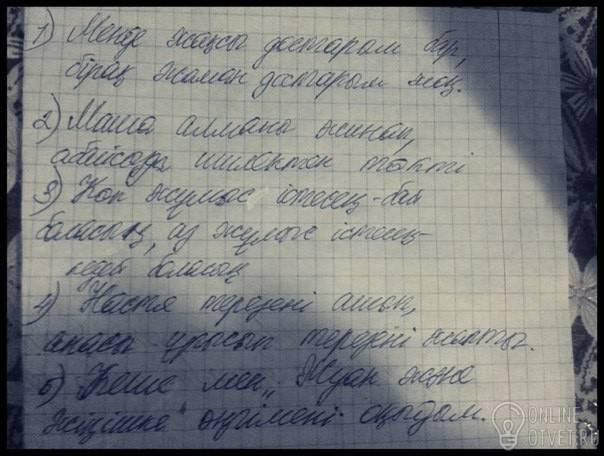 1) Менің жақсы достарам бар,
бірақ жаман достарым жоқ.
2) Маша алманы жинап,
абайсода шилектен төкті
3) Көп жұмыс істесең-бай
боласың, аз жұмыс істесең-
кедей боласың
4) Настя терезені ашып,
анасы ұрысып терезені жапты.
5) Кеше мен "Жуан және
жіңішке" әңгімені оқыдым.
ONLINE
OTVET.RU